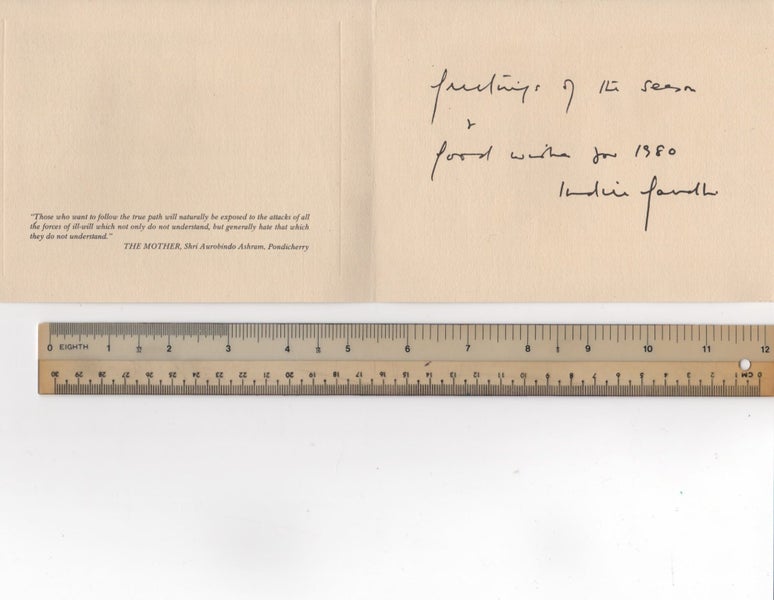 "Those who want to follow the true path will naturally be exposed to the attacks of all
the forces of ill-will which not only do not understand, but generally hate that which
they do not understand."
THE MOTHER, Shri Aurobindo Ashram, Pondicherry
Greetings of the season
&
good wishes for 1980
Indira Gandhi
0 EIGHTH 1 2 3 4 5 6 7 8 9 10 11 12
30 29 28 27 26 25 24 23 22 21 20 19 18 17 16 15 14 13 12 11 10 9 8 7 6 5 4 3 2 1 CM 0